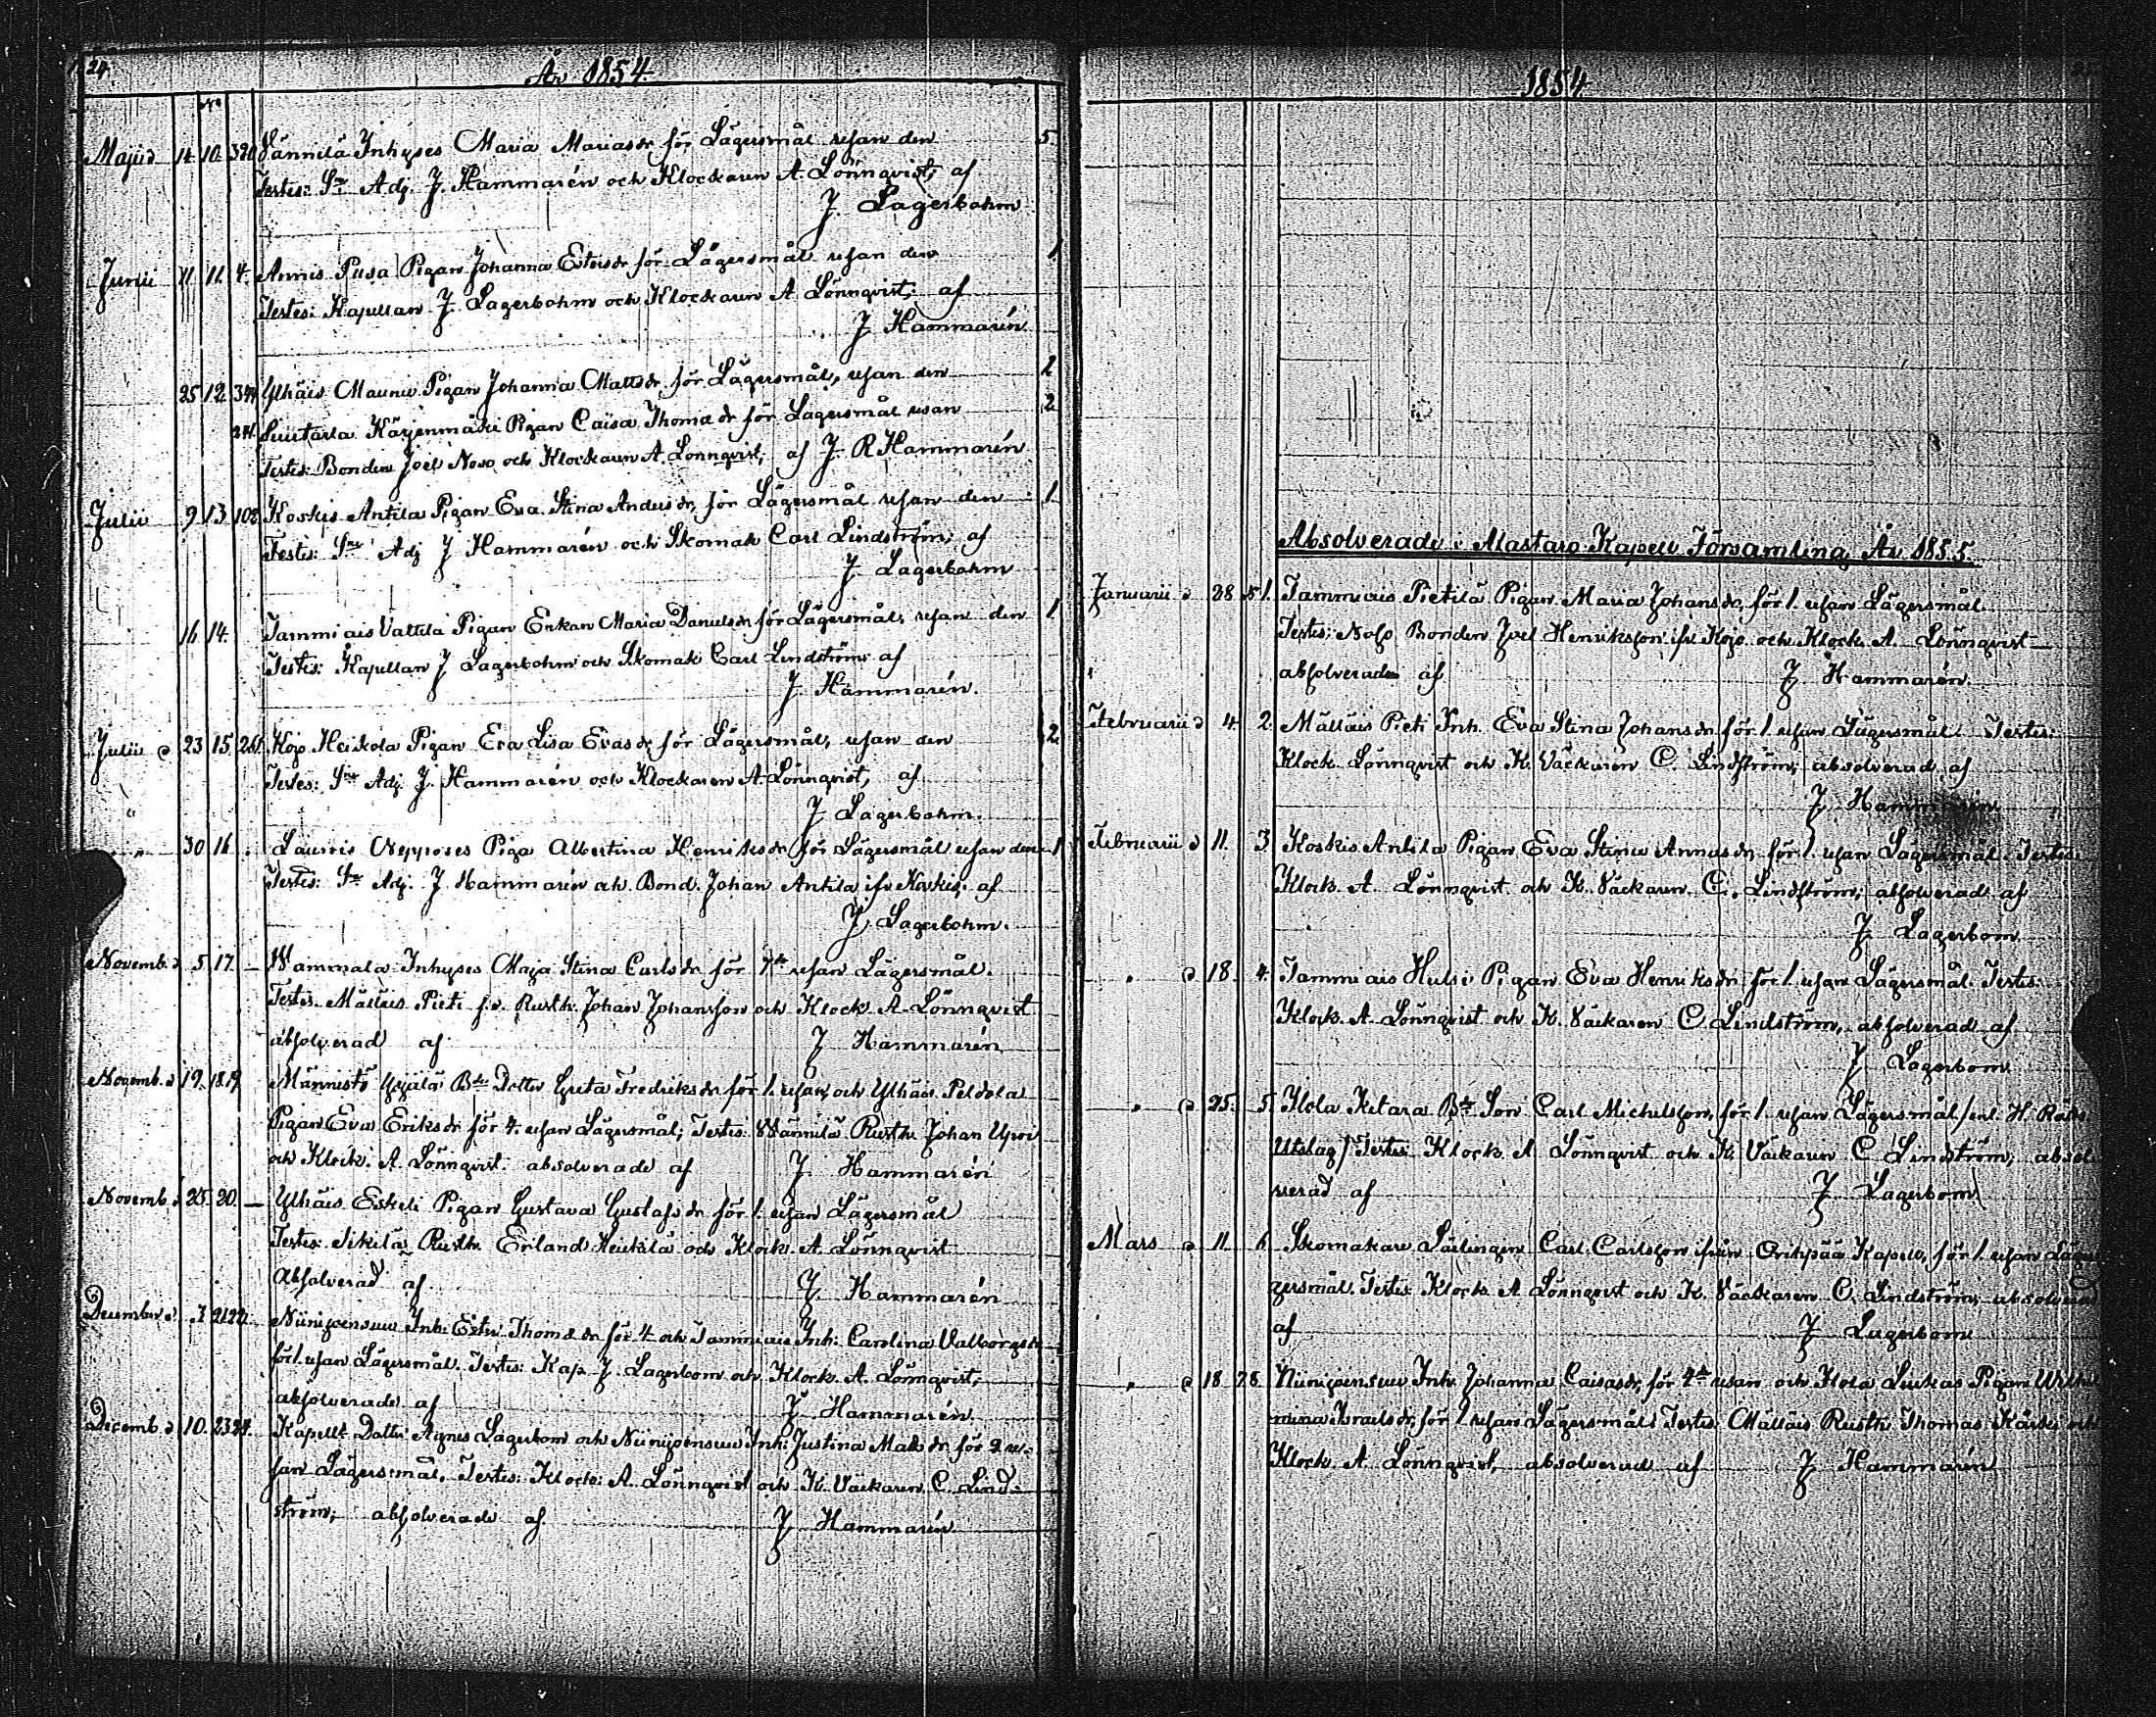 24
År 1854
No
Majii d 14 10. 320 Vännilä Inhyses Maria Mariasdr för Lägersmål resan den 5.
Testes: Sne Adj. J. Hammarén och Klockaren A. Lönnqvist, af
J. Lagerbohm
Junii 11 11. 4. Annis Pusa Pigan Johanna Estersdr för Lägersmål resan den 1
Testes: Kapellan J. Lagerbohm och Klockaren A. Lönnqvist; af
J Hammarén
25 12 Ylhäis Maunu Pigan Johanna Mattsdr för Lägersmål, resan den 2
Pigan Caisa Thomædr för Lägersmål resan 2
Testes: Bonden Joel Noso och Klockaren A. Lönnqvist, af J. R Hammarén
Julii 9 13 108 Koskis Antila Pigan Eva Stina Andersdr för Lägersmål resan den 1
Testes: Sne Adj J Hammarén och Skomak Carl Lindström; af
J. Lagerbohm
16 14. Tammiais Vattila Pigan Enkan Maria Danielsdr för Lägersmål, resan den 1
Testes: Kapellan J Lagerbohm och Skomak Carl Lindström af
J. Hammarén.
Julii d 23 15 261 Kojo Heikola Pigan Eva Lisa Evasdr för Lägersmål, resan den 2
Testes: Sne Adj. J. Hammarén och Klockaren A. Lönnqvist, af
J Lagerbohm.
" 30 16 Lauris Nepposes Piga Albertina Henriksdr för Lägersmål resan den 1
Testes: Sne Adj. J. Hammarén och Bond. Johan Antila ifr. Koskis; af
J. Lagerbohm.
Novemb. d 5 17. — Wammala Inhyses Maja Stina Carlsdr för 7de resan Lägersmål.
Testes. Mälläis Pieti f.v. Rusth. Johan Johansson och Klock. A. Lönnqvist
absolverad af J Hammarén
Novemb. d 19. 18.19. Männistö Yrjälä Bde Dotter Greta Fredriksdr för 1. resan och Ylhäis Peldola
Pigan Eva Eriksdr för 4. resan Lägersmål; Testes: Wännilä Rusth. Johan
och Klock. A. Lönnqvist. absolverade af J. Hammarén
Novemb. d 25 20. — Ylhäis Eskeli Pigan Gustava Gustafsdr för 1. resan Lägersmål
Testes. Sikilä Rusth. Erland Heikkilä och Klock. A. Lönnqvist
Absolverad af J Hammarén
December d. 3 21.22. Niinijoensuu Inh: Ester Thomædr för 4 och Tammiais Inh: Carolina Valborgsdr
för 1. resan Lägersmål. Testes: Kap. J. Lagerbom och Klock. A. Lönnqvist,
absolverade af J Hammarén.
Decemb. d 10. 23.24. Kapells Dotter Agnes Lagerbom och Niinijoensuu Inh: Justina Mattsdr för 2 re-
san Lägersmål. Testes: Klock: A. Lönnqvist och K. Väckaren C. Lind-
ström; absolverade af J Hammarén
1854
Absolverade i Mastaro Kapell Församling År 1855.
Januarii d 28 1. Tammiais Pietilä Pigan Maria Johansdr, för 1. resan Lägersmål.
Testes: Noso Bonden Joel Henriksson ifr Kojo och Klock. A. Lönnqvist
absolverade af J Hammarén.
Februarii d 4. 2. Mälläis Pieti Inh. Eva Stina Johansdr för 1 resan Lägersmål. Testes:
Klock. Lönnqvist och K. Väckaren C. Lindström; absolverad af
J Hammarén
Februarii d 11. 3 Koskis Antila Pigan Eva Stina Annasdr för 1. resan Lägersmål. Testes:
Klock. A. Lönnqvist och K. Väckaren C. Lindström; absolverad af
J Lagerbom
" d 18. 4. Tammiais Hulsi Pigan Eva Henriksdr för 1 resan Lägersmål. Testes:
Klock. A. Lönnqvist och K. Väckaren C Lindström, absolverad af
J Lagerbom
" d 25. 5 Klola Ketara Bde Son Carl Michelsson, för 1. resan Lägersmål /enl. H. Rätts
Utslag/ Testes Klock. A Lönnqvist och K. Väckaren C Lindström; absol
verad af J Lagerbom
Mars d 11. 6 Skomakare Lärlingen Carl Carlsson ifrån Oripää Kapell, för 1. resan Läge
gersmål. Testes: Klock. A Lönnqvist och K. Väckaren C. Lindström, absolverad
af J Lagerbom
" d 18 7.8. Niinijoensuu Inh. Johanna Caisasdr, för 4de resan och Klola Liukas Pigan Wilhel
mina Israelsdr, för 1 resan Lägersmål: Testes: Mälläis Rusth. Thomas Kärki och
Klock. A. Lönnqvist, absolverad af J Hammarén